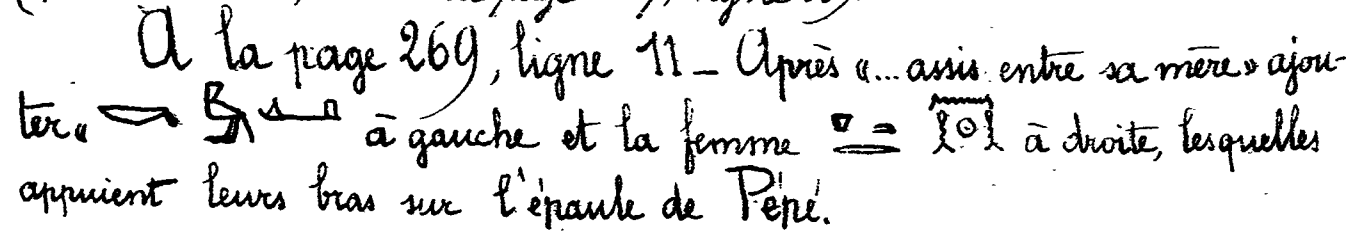 A la page 269, ligne 11 _ Après «... assis entre sa mère» ajou-
ter « à gauche et la femme à droite, lesquelles
appuient leurs bras sur l'épaule de Pépé.